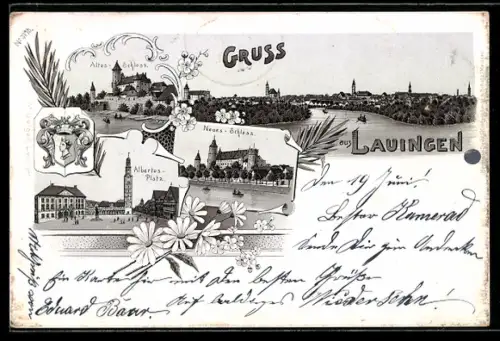 GRUSS
aus LAUINGEN
Altes-Schloss.
Neues-Schloss.
Albertus-
Platz.
Den 19 Juni!
Bester Kamerad
Sende Dir zum Andenken
Ein Karte hir mit den besten Grüße
Auf baldiges Wiedersehn!
Eduard Baur.